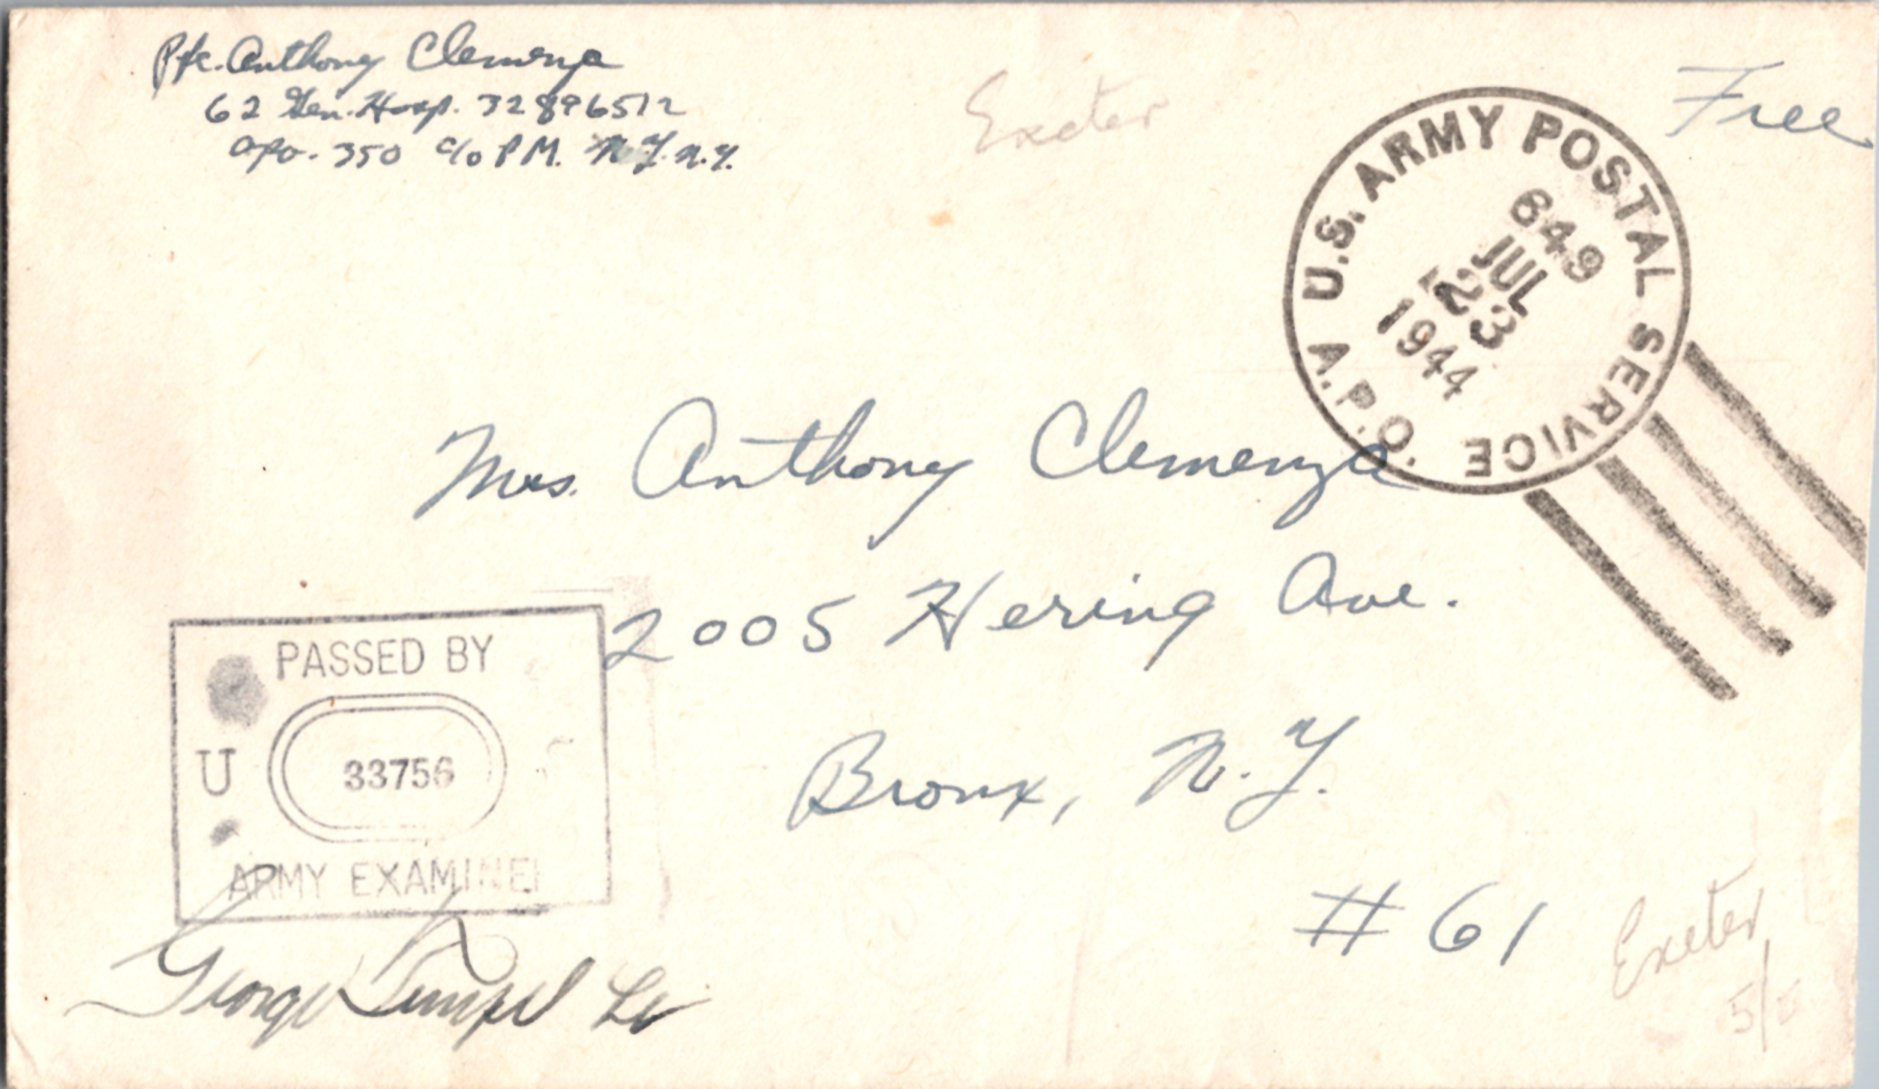 Pfc. Anthony Clemenza
62 Gen. Hosp. 32896512
apo. 350 c/o P M. N.Y. N.Y.
Exeter
Free
U.S. ARMY POSTAL SERVICE
A.P.O.
649
JUL
23
1944
Mrs. Anthony Clemenza
2005 Hering Ave.
Bronx, N.Y.
# 61
PASSED BY
U
33756
ARMY EXAMINE
George
Exeter